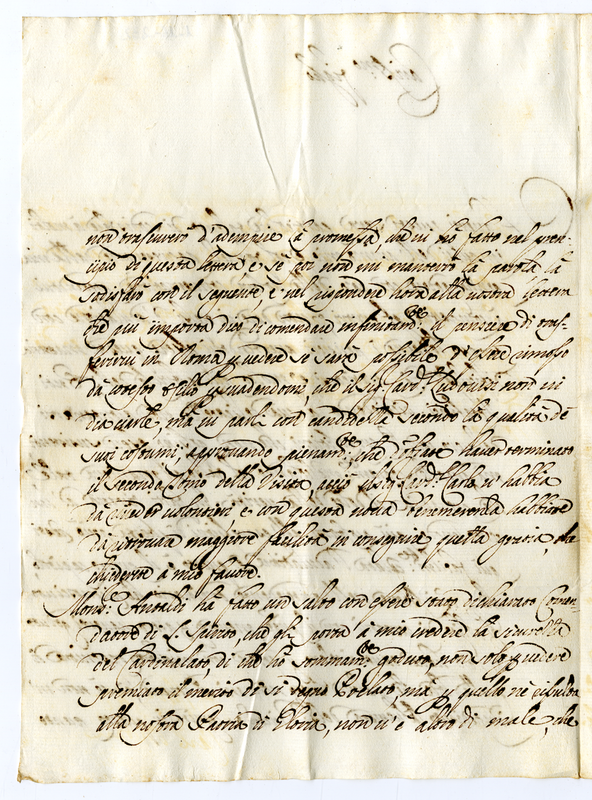 non trascurerò d'adempire la promessa, che vi hò fatto nel prin-
cipio di questa lettera, e sè poi non mi manterrò la parola, la
sodisfarò con il seguente, e nel rispondere hora alla vostra lettera
che più importa dico di comendare infinitam.te il pensiero di tras-
ferirvi in Roma p vedere se sarà possibile d'esser rimosso
da cotesto persuadendomi, che il Sig. Card. Ludovisi non vi
dia ciarle, mà vi parli con candidezza secondo la qualità de
suoi costumi, approvando pienam.te, che dobbiate haver terminato
il secondo anno della Visita, acciò il Sig. Card. Carlo v'habbia
da veder volontieri e con questa nova benemerenza habbiate
da ritrovare maggiore facilità in conseguire quella grazia, che
chiederete à mio favore
Mons.r Ansaldi hà fatto un salto con essere stato dichiarato Comen-
datore di S. Spirito, che gli porta à mio credere la sicurezza
del Cardinalato, di che hò sommam.te goduto, non solo p vedere
premiato il merito di sì degno Prelato, mà p quello ne risulta
alla nostra Patria di gloria, non v'è altro di male, che